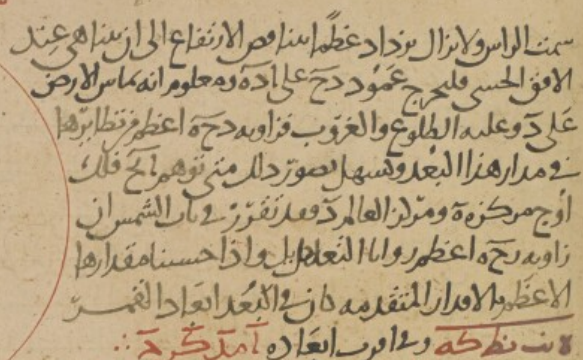 سمت الراس ولا يزال يزداد عظما بتناقص الارتفاع الى ان يتناهى عند
الافق الحسى فليخرج عمود دح على اده ومعلوم انه يماس الارض
على د وعليه الطلوع والغروب فزاويه دحه اعظم من نظايرها
فى مدار هذا البعد ويسهل تصور ذلك متى توهم فلك
اوج مركزه ه ومركز العالم د فقد تقرر فى باب الشمس ان
زاويه دحه اعظم زوايا التعديل واذا حسبنا مقدارها
الاعظم بالاقدار المتقدمه كان فى البعد ابعاد القمر
وفى اقرب ابعاده